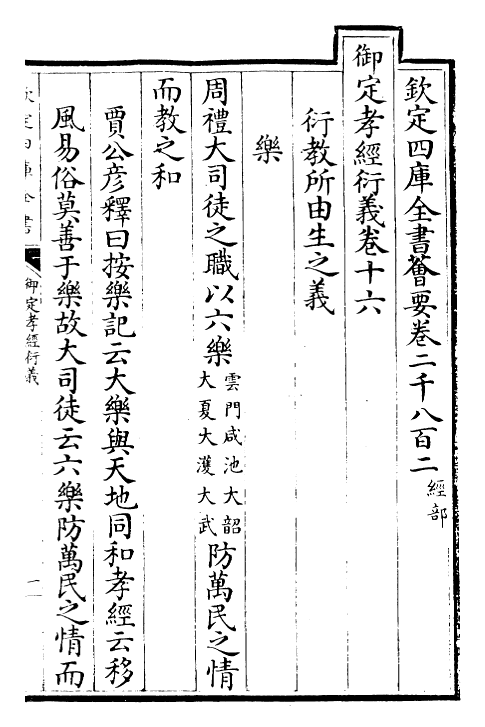 欽定四庫全書薈要卷二千八百二 經部
御定孝經衍義卷十六
衍教所由生之義
樂
周禮大司徒之職以六樂雲門咸池大韶大夏大濩大武防萬民之情
而教之和
賈公彥釋曰按樂記云大樂與天地同和孝經云移
風易俗莫善于樂故大司徒云六樂防萬民之情而
欽定四庫全書
御定孝經衍義